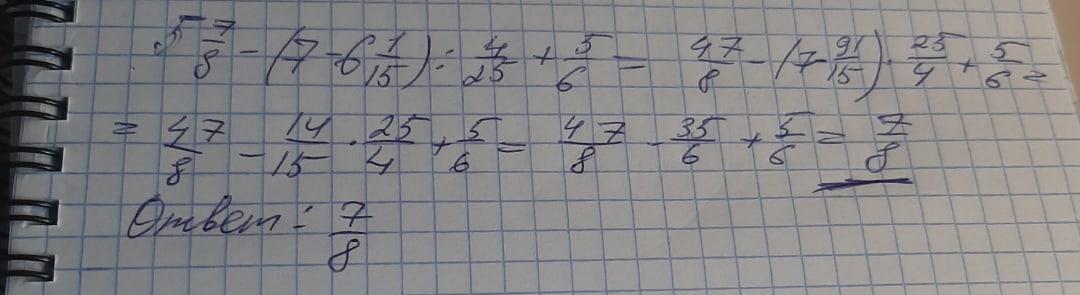 5 7/8 - (7 - 6 1/15) : 4/25 + 5/6 = 47/8 - (7 - 91/15) · 25/4 + 5/6 =
= 47/8 - 14/15 · 25/4 + 5/6 = 47/8 - 35/6 + 5/6 = 7/8
Ответ: 7/8